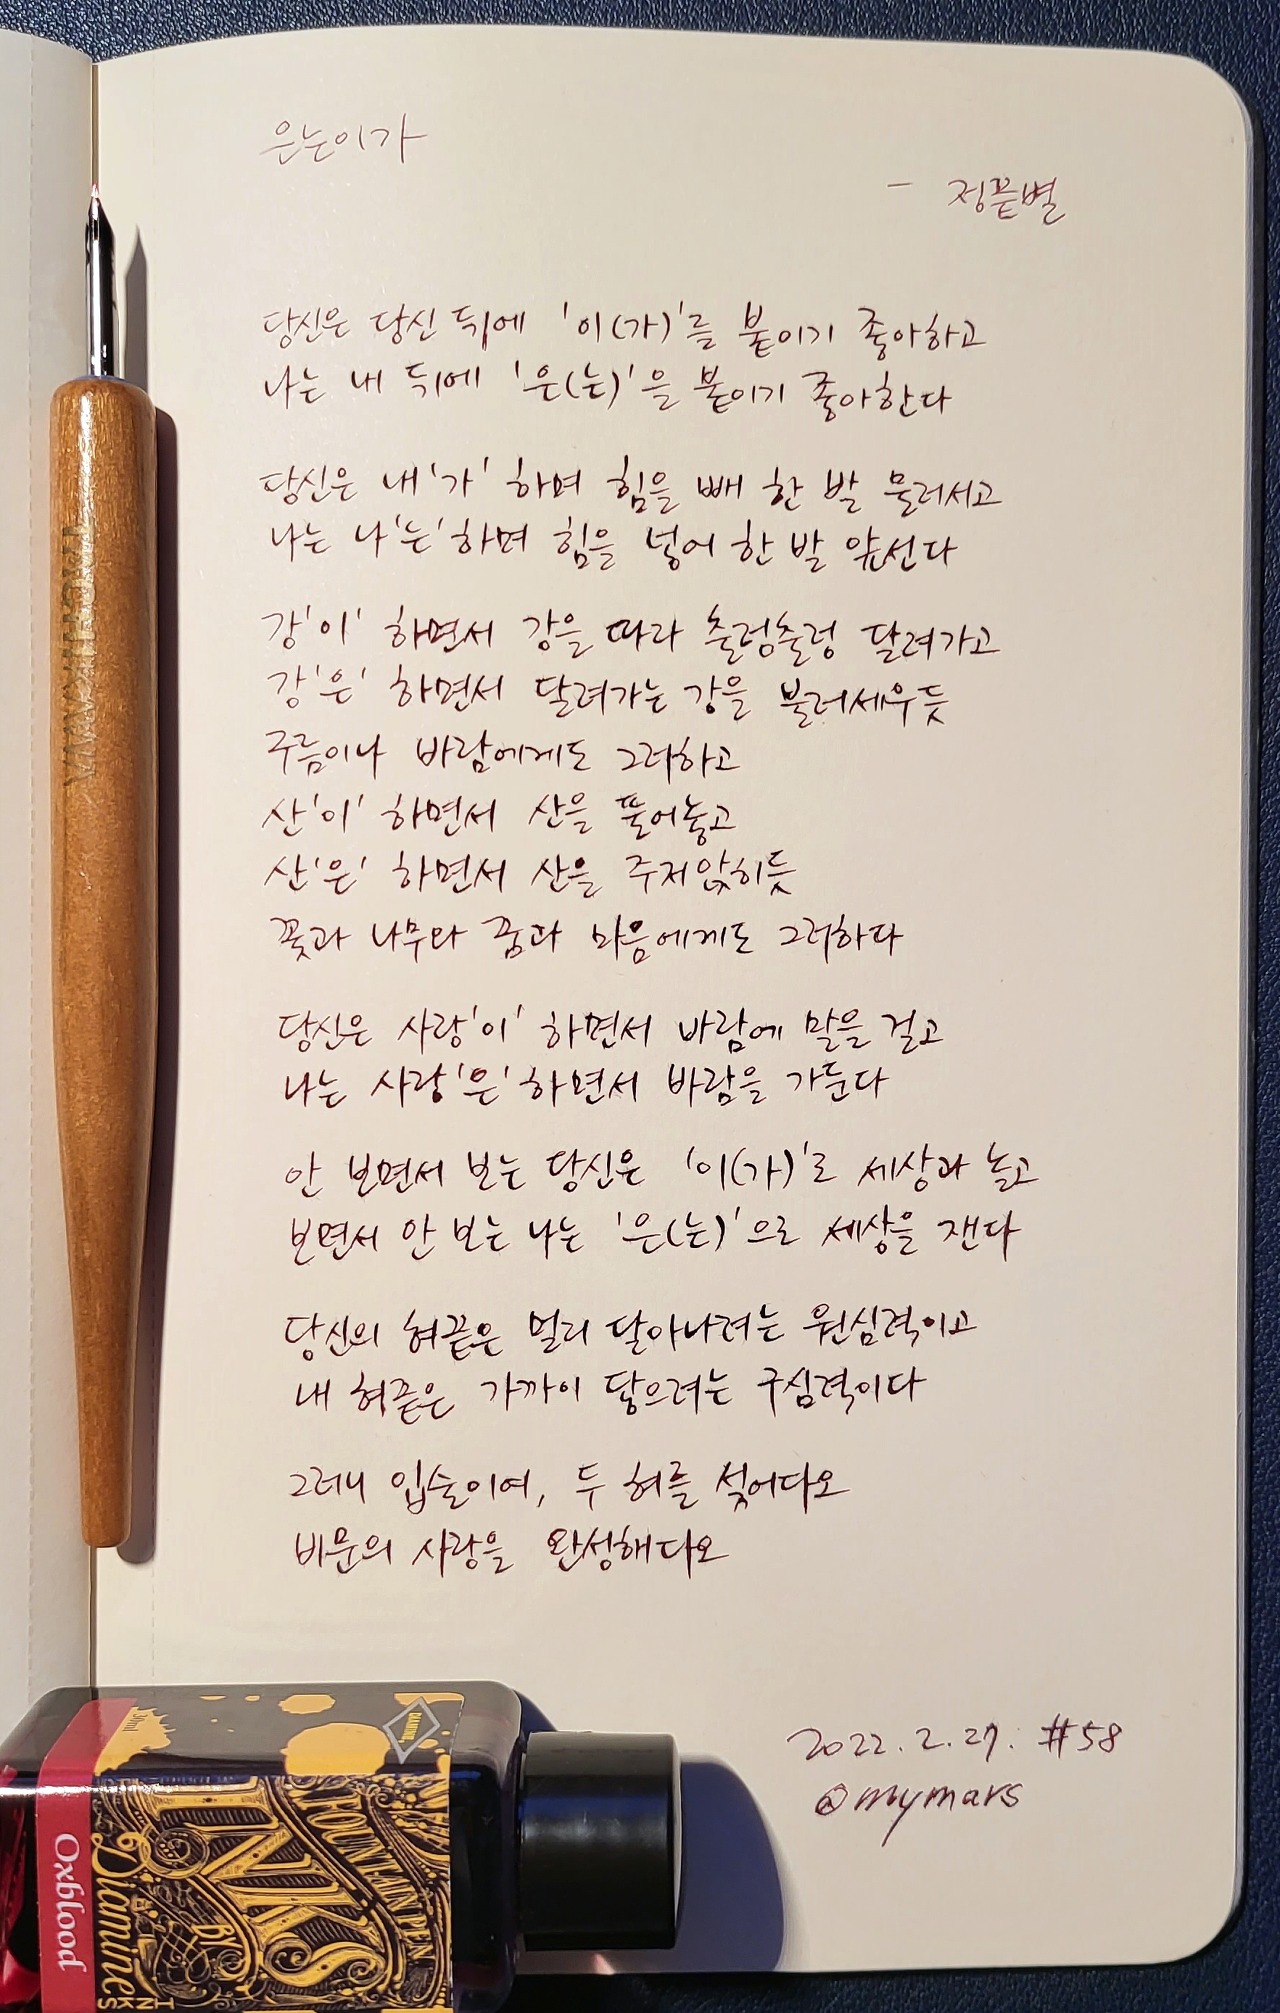 은는이가
- 정끝별
당신은 당신 뒤에 '이(가)'를 붙이기 좋아하고
나는 내 뒤에 '은(는)'을 붙이기 좋아한다
당신은 내'가' 하며 힘을 빼 한 발 물러서고
나는 나'는' 하며 힘을 넣어 한 발 앞선다
강'이' 하면서 강을 따라 출렁출렁 달려가고
강'은' 하면서 달려가는 강을 불러세우듯
구름이나 바람에게도 그러하고
산'이' 하면서 산을 풀어놓고
산'은' 하면서 산을 주저앉히듯
꽃과 나무와 꿈과 마음에게도 그러하다
당신은 사랑'이' 하면서 바람에 말을 걸고
나는 사랑'은' 하면서 바람을 가둔다
안 보면서 보는 당신은 '이(가)'로 세상과 놀고
보면서 안 보는 나는 '은(는)'으로 세상을 잰다
당신의 혀끝은 멀리 달아나려는 원심력이고
내 혀끝은 가까이 닿으려는 구심력이다
그러니 입술이여, 두 혀를 섞어다오
비문의 사랑을 완성해다오
2022.2.27. #58
@mymars
TACHIKAWA
30ml
DIAMINE
FOUNTAIN PEN
INKS
BY
Diamine
INKS
Oxblood